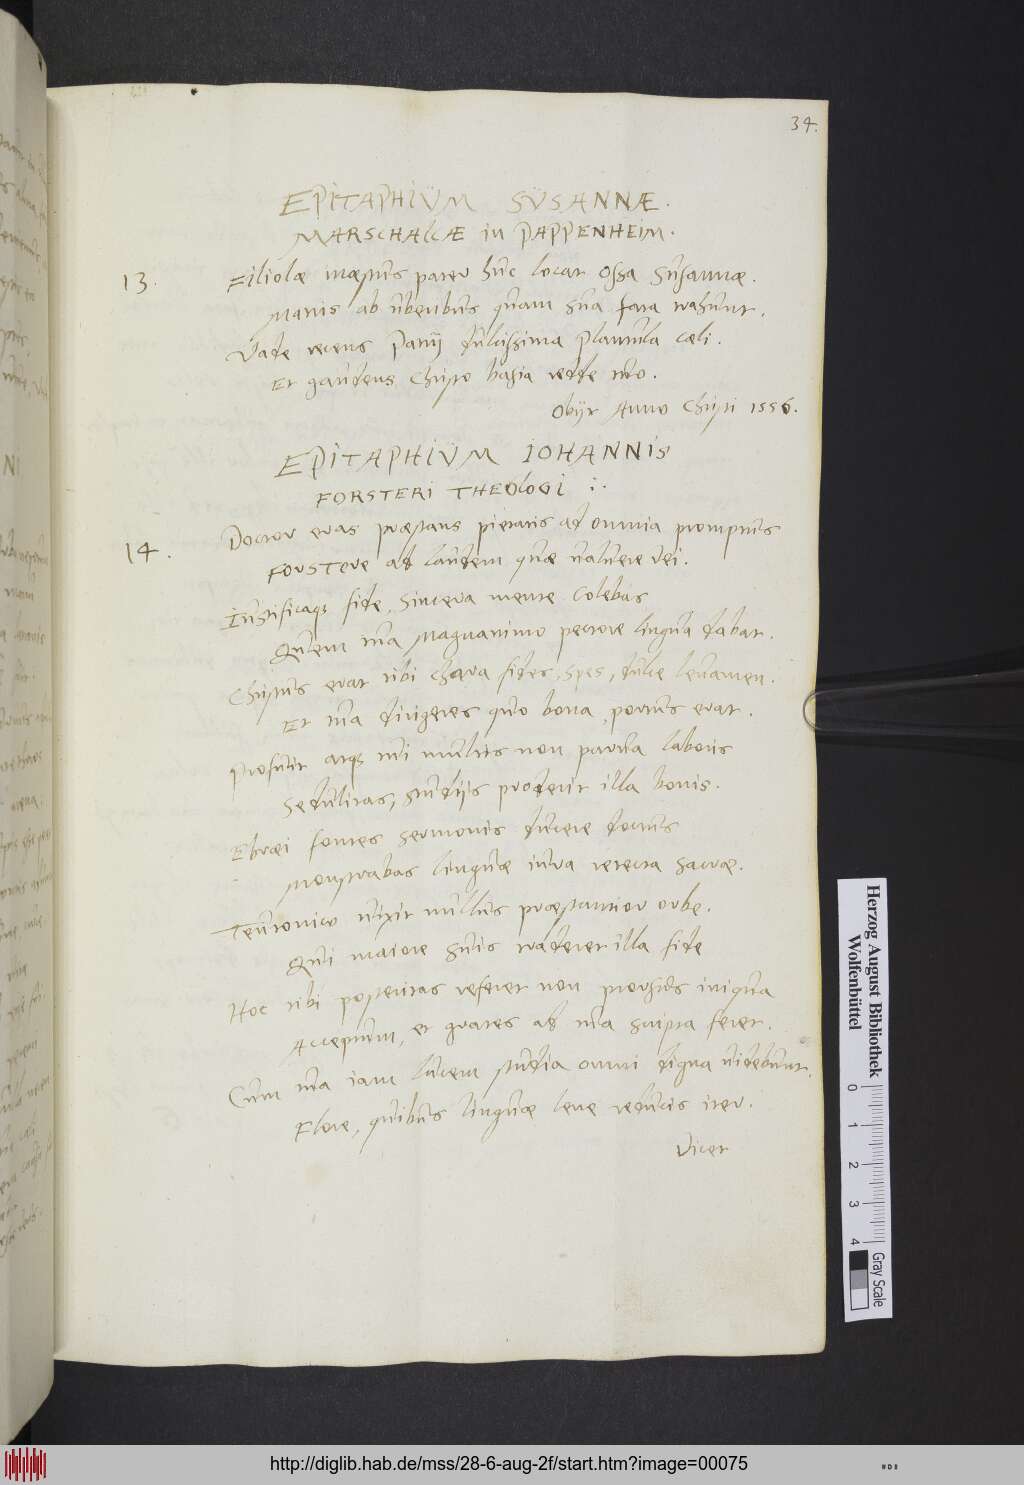 34.
EPITAPHIUM SUSANNÆ.
MARSCHALCÆ in PAPPENHEIM.
13. Filiolæ mæstus pater huc locat ossa Susannæ.
Matris ab uberibus quam sua fata trahunt.
Vade recens Partij dulcissima plantula cæli.
Et gaudens Christo basia redde tuo.
Obijt Anno Christi 1556.
EPITAPHIUM IOHANNIS
FORSTERI THEOLOGI
14. Doctor eras præstans pietatis ad omnia promptus
Forstere ad laudem quæ valuere Dei.
Iustificaq; fide, sincera mente colebas
Quem tua magnanimo pectore lingua dabat.
Christus erat tibi chara fides, spes, dulce levamen.
Et tua dirigeres quo bona, portus erat.
Profuit atq; tui multis non parva laboris
Sedulitas, studijs proderit illa bonis.
Ebræi fontes sermonis ducere doctus
Monstrabas linguæ intra retecta sacræ.
Teutonico vixit nullus præstantior orbe.
Qui maiore suis traderet illa fide
Hoc tibi posteritas referet non prorsus iniqua
Acceptum, et grates ad tua scripta feret.
Cum tua iam lucem studia omni digna videbunt.
Flore, quibus linguæ leve reducis iter.
Vicet
Herzog August Bibliothek
Wolfenbüttel
0 1 2 3 4
Gray Scale
http://diglib.hab.de/mss/28-6-aug-2f/start.htm?image=00075